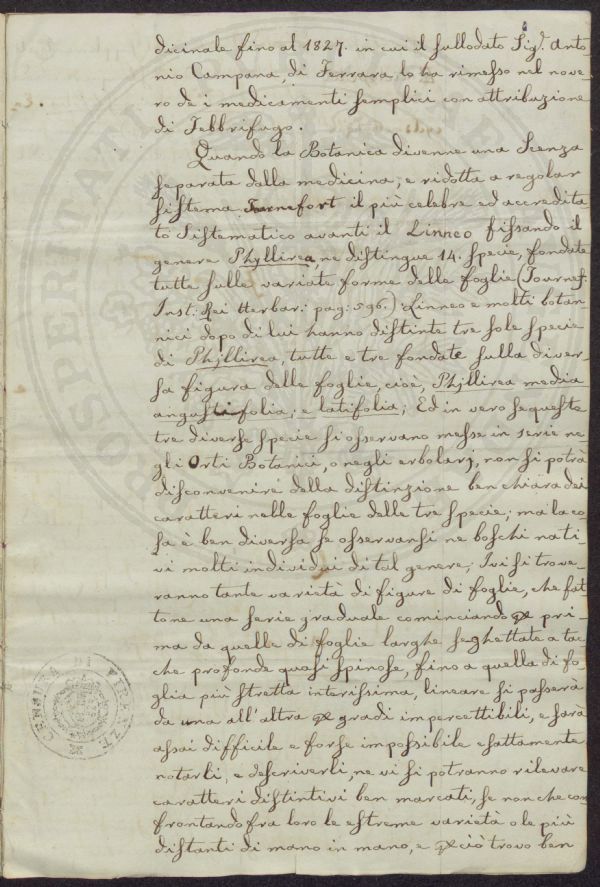 dicinale fino al 1827. in cui il sullodato Sig.r Anto-
nio Campana, di Ferrara, lo ha rimesso nel nove-
ro de i medicamenti semplici con attribuzione
di Febbrifugo.
Quando la Botanica divenne una Scenza
separata dalla medicina, e ridotta a regolar
sistema Turnefort il più celebre ed accredita
to Sistematico avanti il Linneo fissando il
genere Phyllirea, ne distingue 14. specie, fondate
tutte sulle variate forme delle foglie (Tournef.
Inst: Rei Herbar: pag: 596.) Linneo e molti botan-
nici dopo di lui hanno distinte tre sole specie
di Phyllirea, tutte e tre fondate sulla diver-
sa figura delle foglie, cioè, Phyllirea media
angustifolia, e latifolia; Ed in vero se queste
tre diverse specie si osservano messe in serie ne
gli Orti Botanici, o negli erbolarj, non si potrà
disconvenire della distinzione ben chiara dei
caratteri nelle foglie delle tre specie; ma la co
sa è ben diversa se osservansi ne boschi nati-
vi molti individui di tal genere; Ivi si trove-
ranno tante varietà di figure di foglie, che fat
tone una serie graduale cominciando per pri-
ma da quelle di foglie larghe seghettate a tac
che profonde quasi spinose, fino a quella di fo
glia più stretta interissima, lineare si passerà
da una all'altra per gradi impercettibili, e sarà
assai difficile e forse impossibile esattamente
notarli, e descriverli, ne vi si potranno rilevare
caratteri distintivi ben marcati, se non che con
frontando fra loro le estreme varietà o le più
distanti di mano in mano, e perciò trovo ben
CENSURA DI FIRENZE
PROSPERITATI